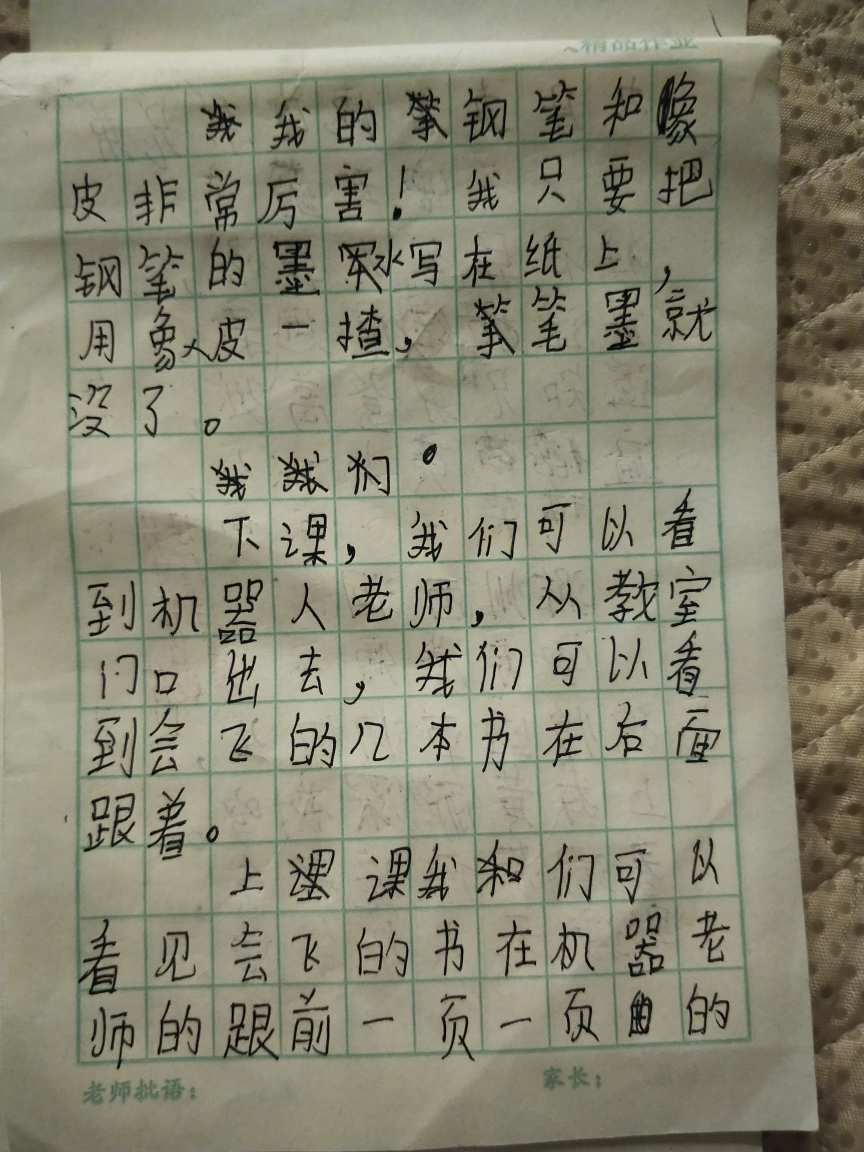 精品作业
我的钢笔和橡
皮非常厉害！我只要把
钢笔的墨水写在纸上，
用象皮一揸，笔墨就
没了。
我们
下课，我们可以看
到机器人老师，从教室
门口出去，我们可以看
到会飞的几本书在右面
跟着。
上课我们可以
看见会飞的书在机器老
师的跟前一页一页的
老师批语：
家长：